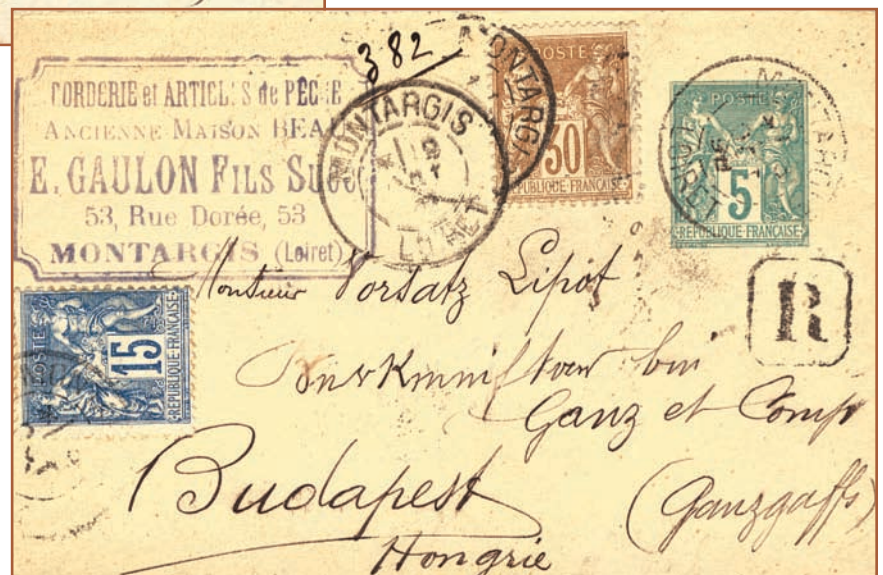 382
CORDERIE et ARTICLES de PÊCHE
ANCIENNE MAISON BEAU
E. GAULON FILS Succ
53, Rue Dorée, 53
MONTARGIS (Loiret)
MONTARGIS
LOIRET
MONTARGIS
POSTE
30
REPUBLIQUE FRANÇAISE
POSTE
5
REPUBLIQUE FRANÇAISE
MONTARGIS
LOIRET
R
POSTE
15
REPUBLIQUE FRANÇAISE
Monsieur Vorsatz Lipót
Ganz et Comp
Budapest (Ganzgasse)
Hongrie